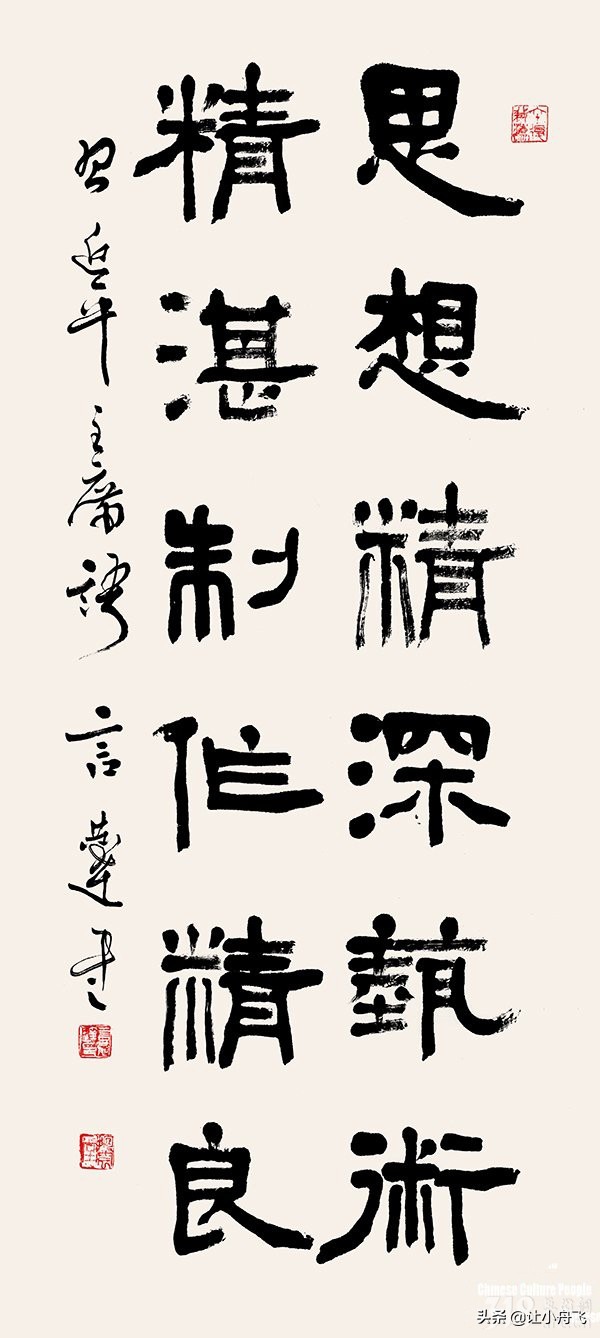 思想精深藝術
精湛制作精良
習近平主席語 言達書
Chinese Culture People
头条 @让小舟飞